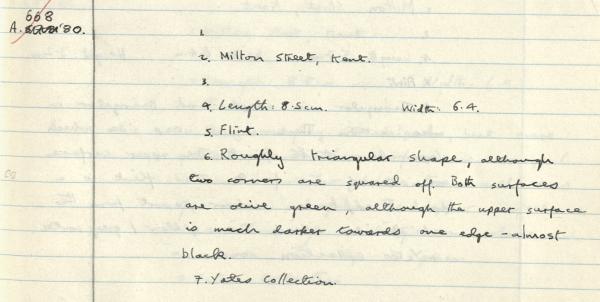 668
A. '30.
1.
2. Milton Street, Kent.
3.
4. Length: 8.5cm. Width: 6.4.
5. Flint.
6. Roughly triangular shape, although
two corners are squared off. Both surfaces
are olive green, although the upper surface
is much darker towards one edge - almost
black.
7. Yates Collection.